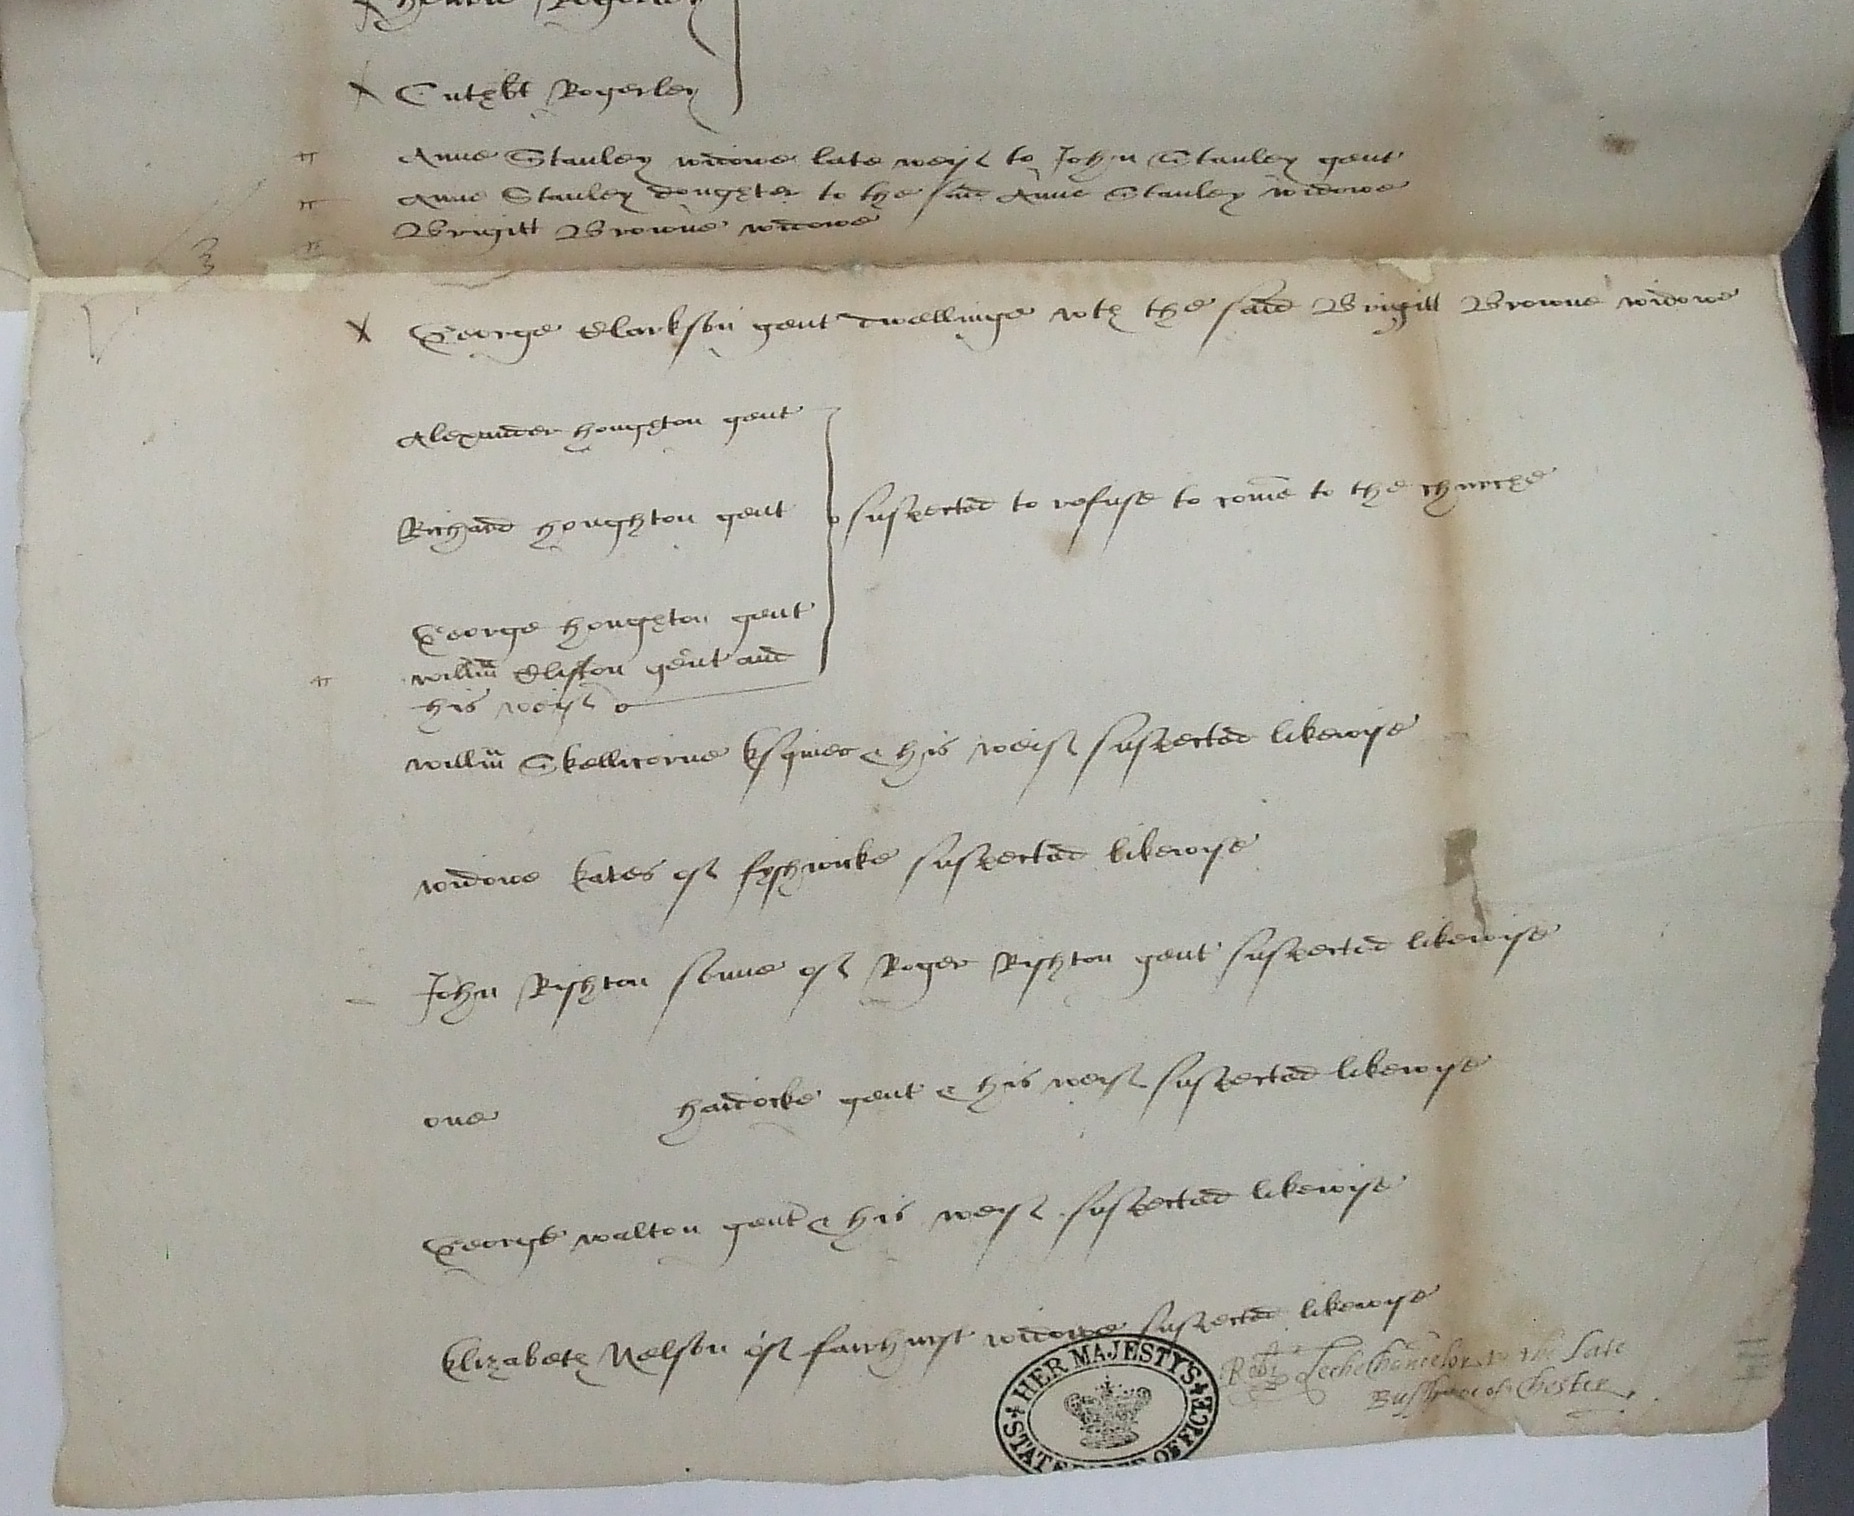 x Henrie Rogerley
x Cutbt Rogerley
Anne Stanley widowe late weif to John Stanley gent
Anne Stanley doughter to the said Anne Stanley widowe
Brigitt Browne widowe
3
x George Clarkson gent dwellinge wth the said Brigitt Browne widowe
Alexander houghton gent
Richard houghton gent suspected to refuse to come to the churche
George houghton gent
willm Clifton gent and
his weif
willm Skellicorne Esquier & his weif suspected likewise
widowe Kates of fyshwicke suspected likewise
John Rishton sonne of Roger Rishton gent suspected likewise
one haidocke gent & his weif suspected likewise
George walton gent & his weif suspected likewise
Elizabeth Nelson of fairhurst widowe suspected likewise
Robt Leche Chancelor to the late
Busshoppe of Chester
HER MAJESTY'S STATE PAPER OFFICE